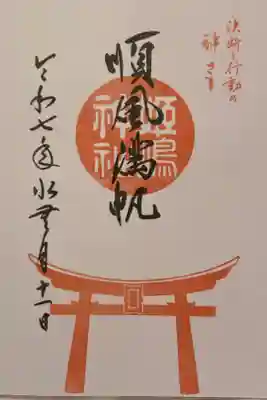 決断と行動の
神さま
順風満帆
姫嶋
神社
令和七年水無月十一日